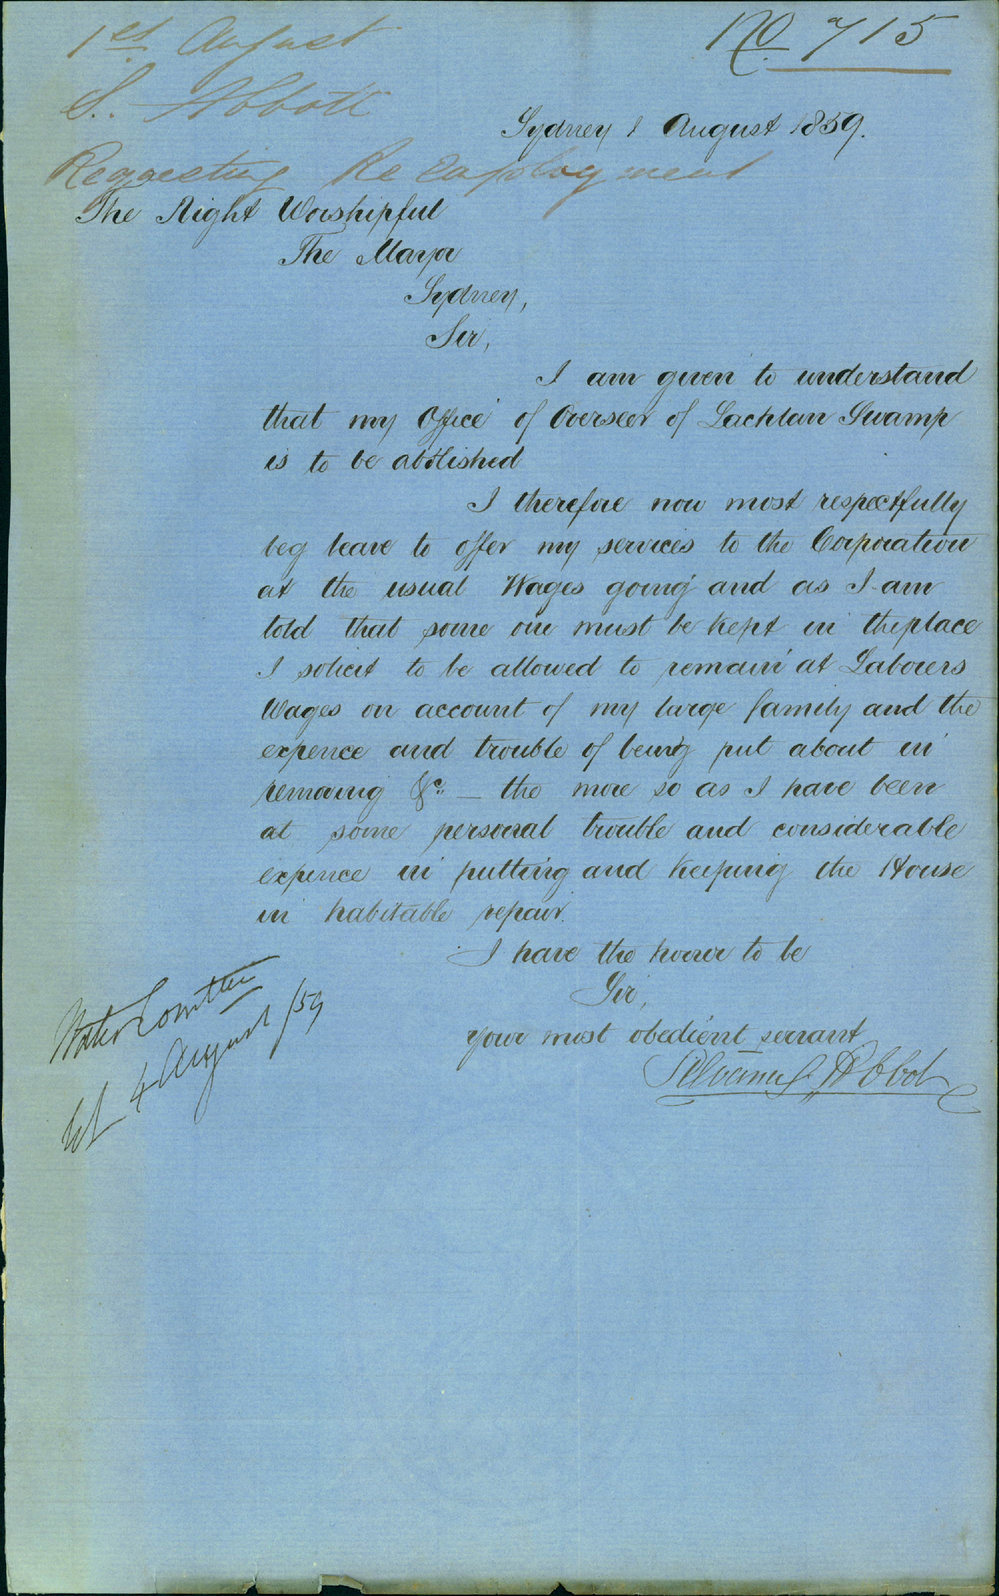 1st August
No 715
S. Abbott
Sydney 1 August 1859.
Requesting Re employment
The Right Worshipful
The Mayor
Sydney,
Sir,
I am given to understand
that my Office of Overseer of Lachlan Swamp
is to be abolished
I therefore now most respectfully
beg leave to offer my services to the Corporation
at the usual Wages going and as I am
told that some one must be kept in the place
I solicit to be allowed to remain at Laborers
Wages on account of my large family and the
expence and trouble of being put about in
removing &c. — the more so as I have been
at some personal trouble and considerable
expence in putting and keeping the House
in habitable repair.
I have the honor to be
Sir,
your most obedient servant
Silvanus Abbot
Water Comittee
4 August /59